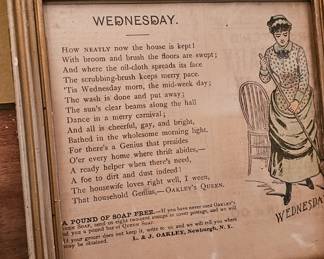 WEDNESDAY.
How neatly now the house is kept!
With broom and brush the floors are swept;
And where the oil-cloth spreads its face
The scrubbing-brush keeps merry pace.
'Tis Wednesday morn, the mid-week day;
The wash is done and put away;
The sun's clear beams along the hall
Dance in a merry carnival;
And all is cheerful, gay, and bright,
Bathed in the wholesome morning light.
For there's a Genius that presides
O'er every home where thrift abides,—
A ready helper when there's need,
A foe to dirt and dust indeed!
The housewife loves right well, I ween,
That household Genius,—Oakley's Queen.
A POUND OF SOAP FREE.—If you have never used Oakley's
Soap, send us eight two-cent stamps to cover postage, and we will
send you a pound bar of Queen Soap.
If your grocer does not keep it, write to us and we will tell you where
may be obtained. L. & J. OAKLEY, Newburgh, N. Y.
WEDNESDAY